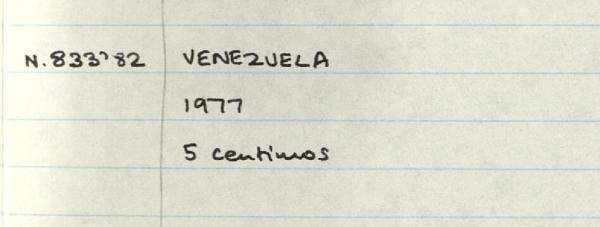 N.833'82 VENEZUELA
1977
5 centimos